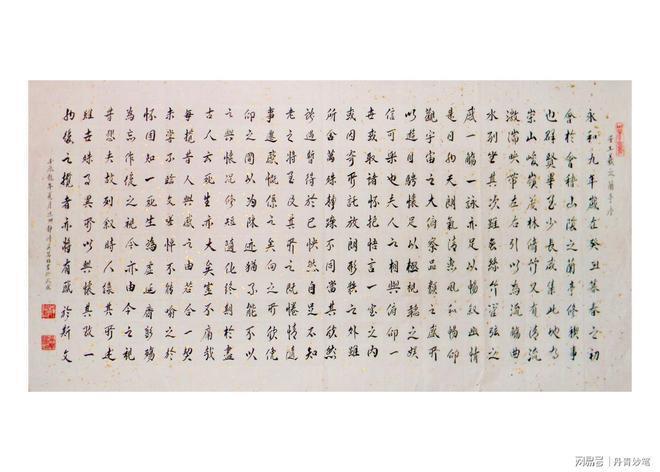 王羲之蘭亭序
永和九年歲在癸丑暮春之初
會於會稽山陰之蘭亭修稧事
也群賢畢至少長咸集此地有
崇山峻嶺茂林修竹又有清流
激湍映帶左右引以為流觴曲
水列坐其次雖無絲竹管弦之
盛一觴一詠亦足以暢敘幽情
是日也天朗氣清惠風和暢仰
觀宇宙之大俯察品類之盛所
以遊目騁懷足以極視聽之娛
信可樂也夫人之相與俯仰一
世或取諸懷抱悟言一室之內
或因寄所託放浪形骸之外雖
所舍萬殊靜躁不同當其欣然
遇暫得於己快然自足不知
老之將至及其所之既惓情隨
事遷感慨係之矣向之所欣俛
仰之間以為陳跡猶不能不以
之興懷況修短隨化終期於盡
古人云死生亦大矣豈不痛哉
每攬昔人興感之由若合一契
未嘗不臨文嗟悼不能喻之於
懷固知一死生為虛誕齊彭殤
為妄作後之視今亦由今之視
昔悲夫故列敘時人錄其所述
雖世殊事異所以興懷其致一
也後之攬者亦將有感於斯文
壬辰龍年夏月
网易号 | 丹青妙笔